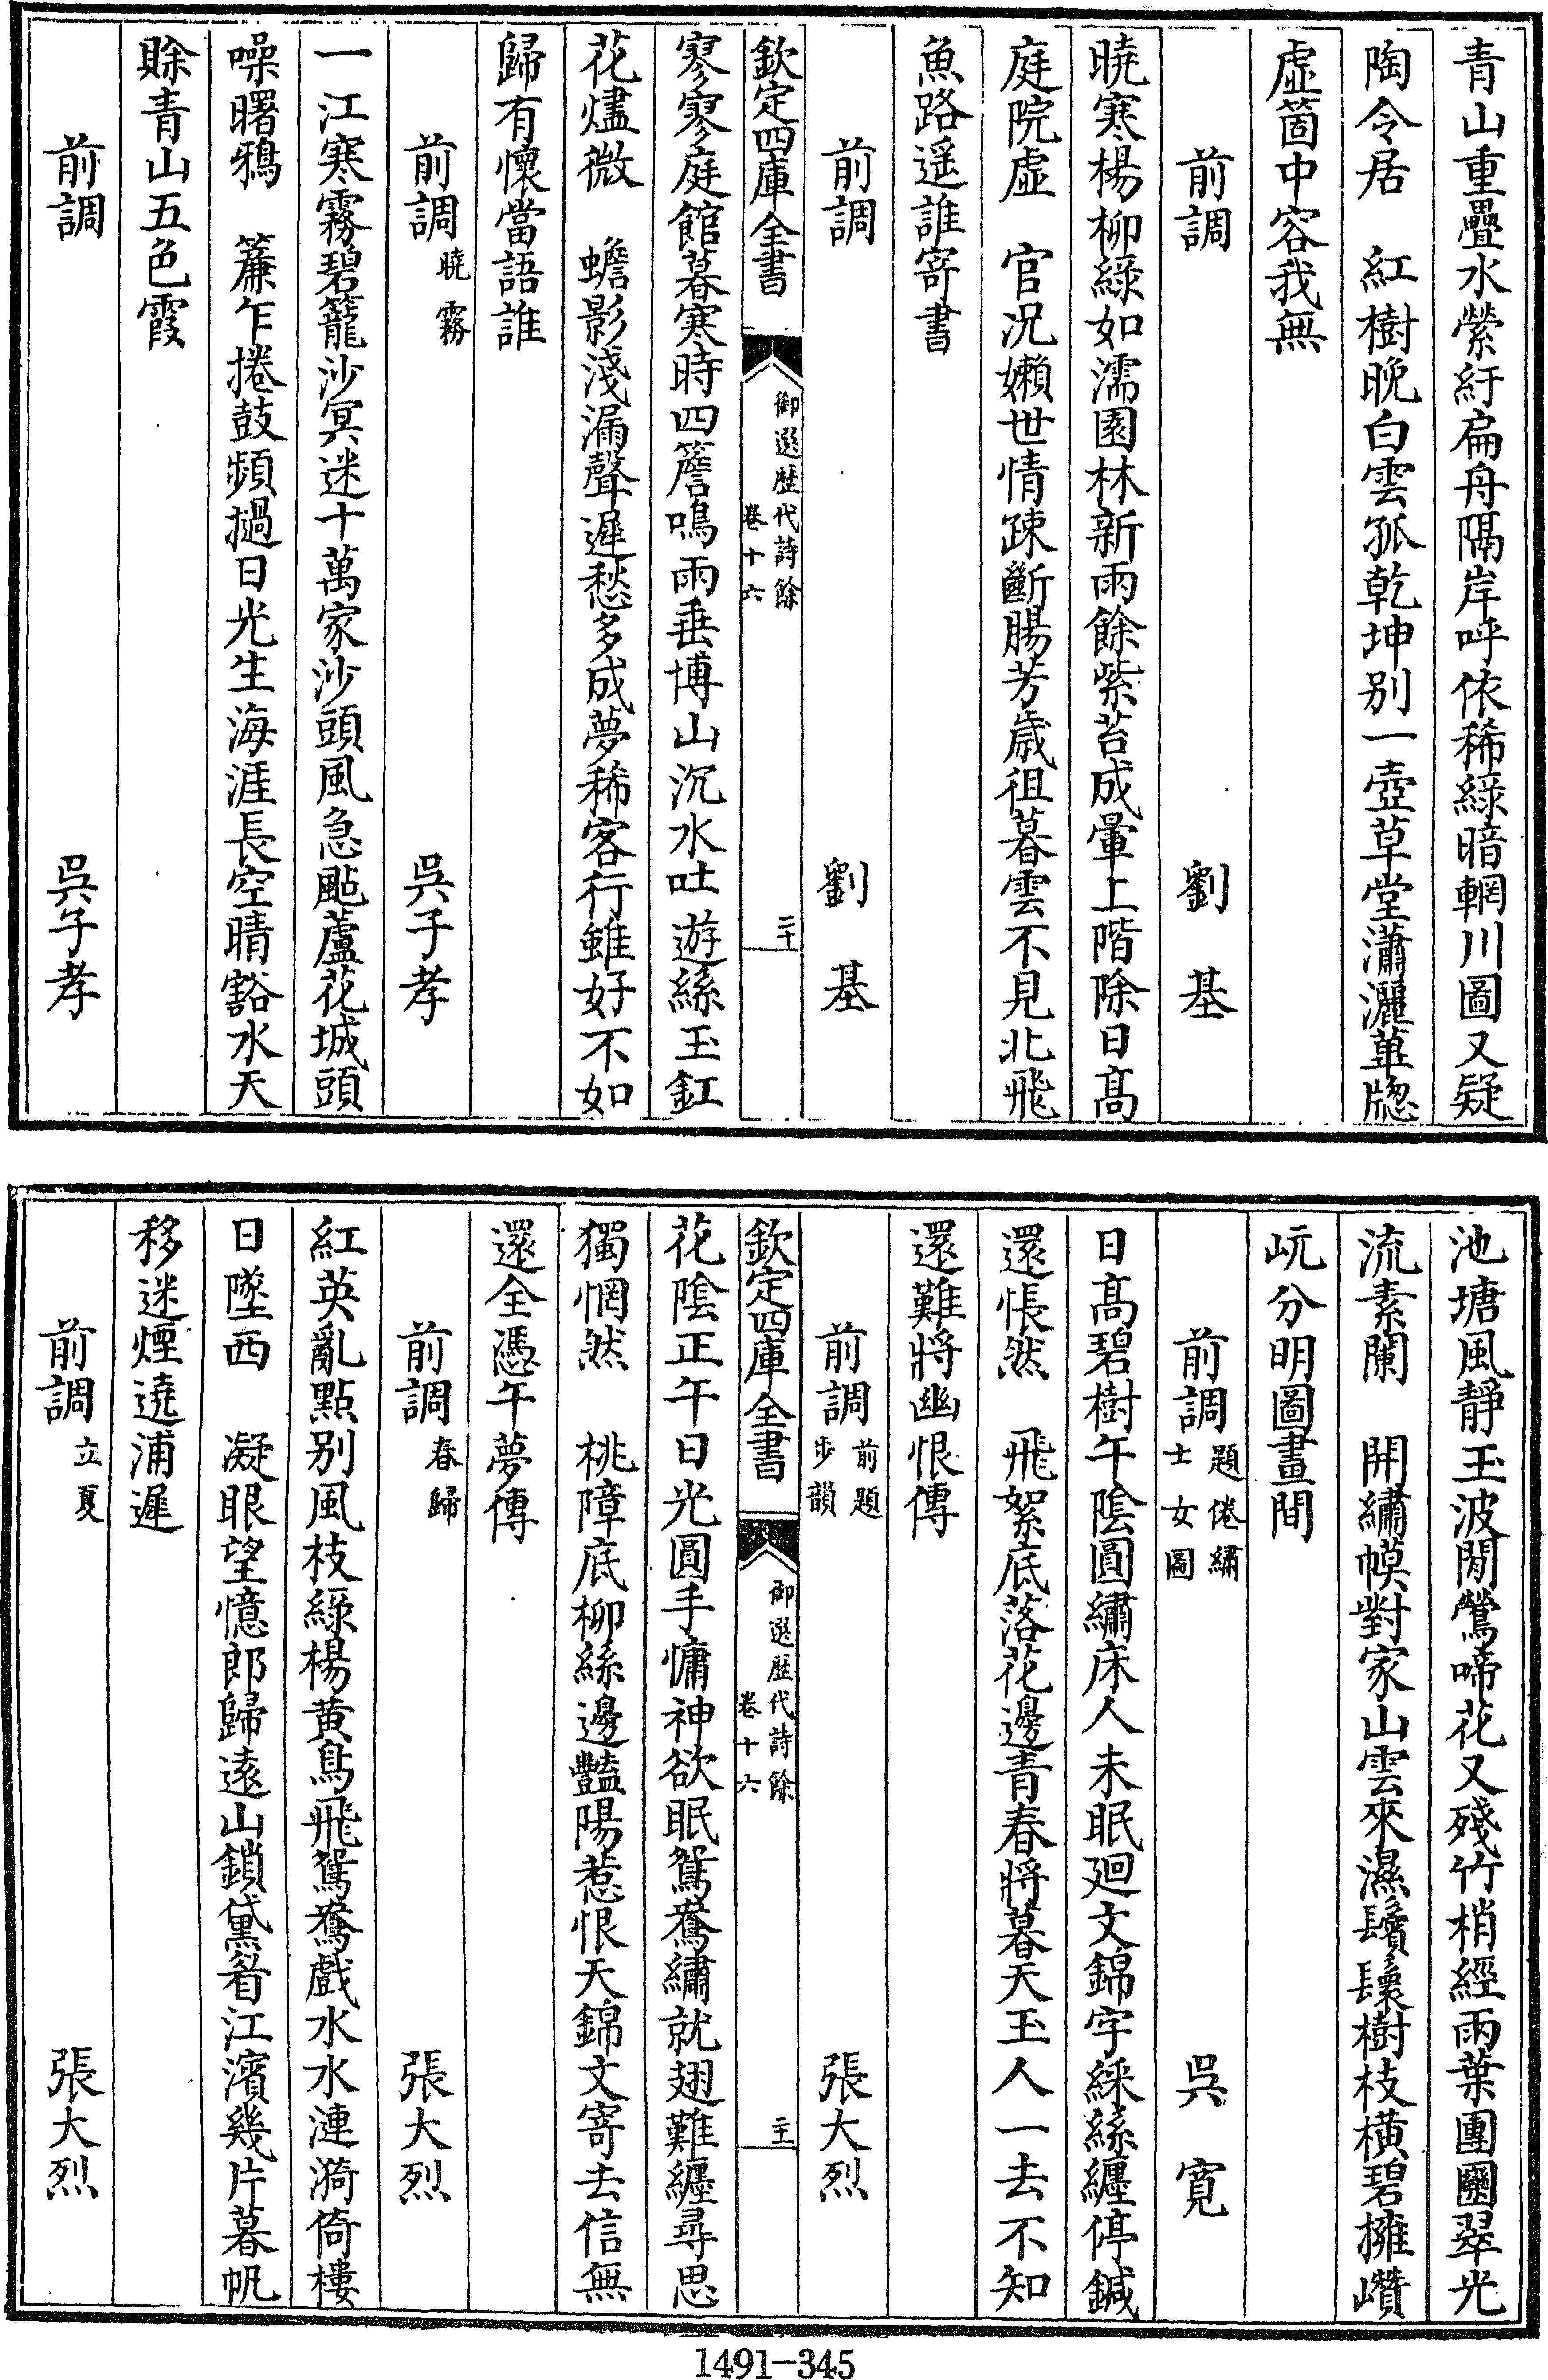 青山重疊水縈紆扁舟隔岸呼依稀綠暗輞川圖又疑
陶令居　紅樹晚白雲孤乾坤别一壺草堂瀟灑蓽牕
虛箇中容我無
前調　劉基
曉寒楊柳綠如濡園林新雨餘紫苔成暈上階除日髙
庭院虛　官况嬾世情疎斷腸芳歲徂暮雲不見北飛
魚路遥誰寄書
前調　劉基
欽定四庫全書　御選歴代詩餘　卷十六　二十
寥寥庭館暮寒時四簷鳴雨垂博山沉水吐遊絲玉釭
花燼微　蟾影淺漏聲遲愁多成夢稀客行雖好不如
歸有懷當語誰
前調曉霧　吳子孝
一江寒霧碧籠沙冥迷十萬家沙頭風急颭蘆花城頭
噪曙鴉　簾乍捲鼓頻撾日光生海涯長空晴豁水天
賒青山五色霞
前調　吳子孝
池塘風靜玉波閒鶯啼花又殘竹梢經雨葉團圞翠光
流素闌　開繡幙對家山雲來濕鬢鬟樹枝橫碧擁巑
岏分明圖畫間
前調題倦繡士女圖　吳寛
日髙碧樹午陰圓繡床人未眠廻文錦字綵絲纏停鍼
還悵然　飛絮底落花邊青春將暮天玉人一去不知
還難將幽恨傳
前調前題步韻　張大烈
欽定四庫全書　御選歴代詩餘　卷十六　二十一
花陰正午日光圓手慵神欲眠鴛鴦繡就翅難纏尋思
獨惘然　桃障底柳絲邊豔陽惹恨天錦文寄去信無
還全憑午夢傳
前調春歸　張大烈
紅英亂點别風枝綠楊黄鳥飛鴛鴦戲水水漣漪倚樓
日墜西　凝眼望憶郎歸遠山鎖黛眉江濱幾片暮帆
移迷煙遶浦遲
前調立夏　張大烈
1491-345